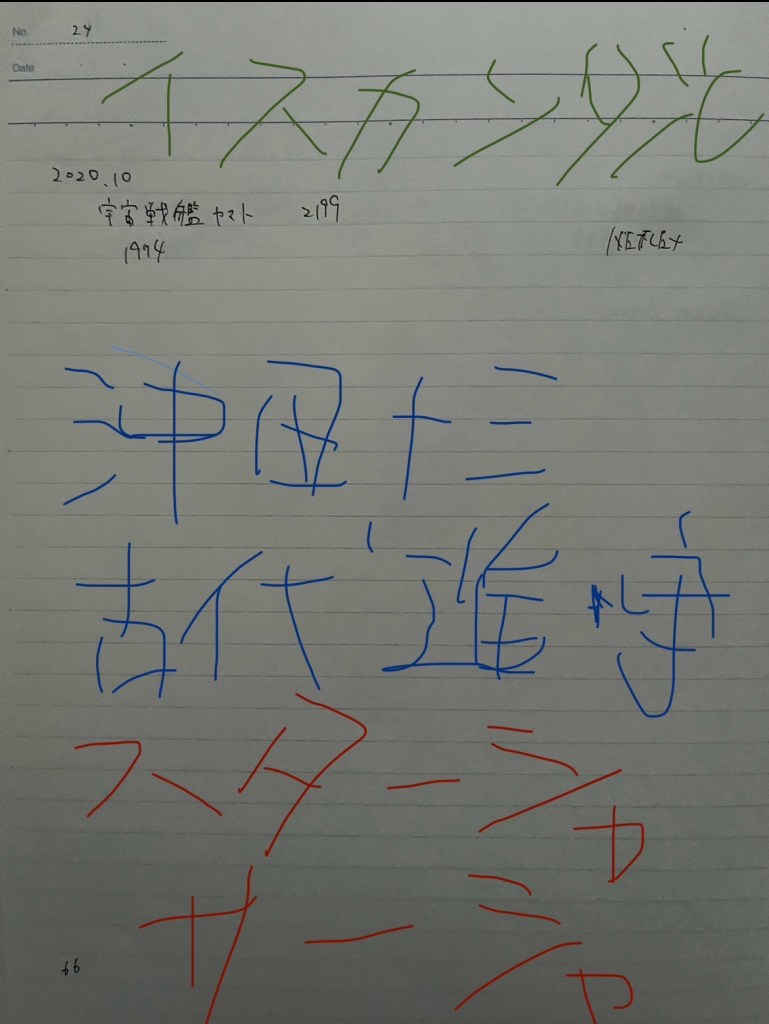 No. 24
Date
イスカンダル
2020.10
宇宙戦艦ヤマト 2199
1974
沖田十三
古代進 守
スターシャ
サーシャ
66